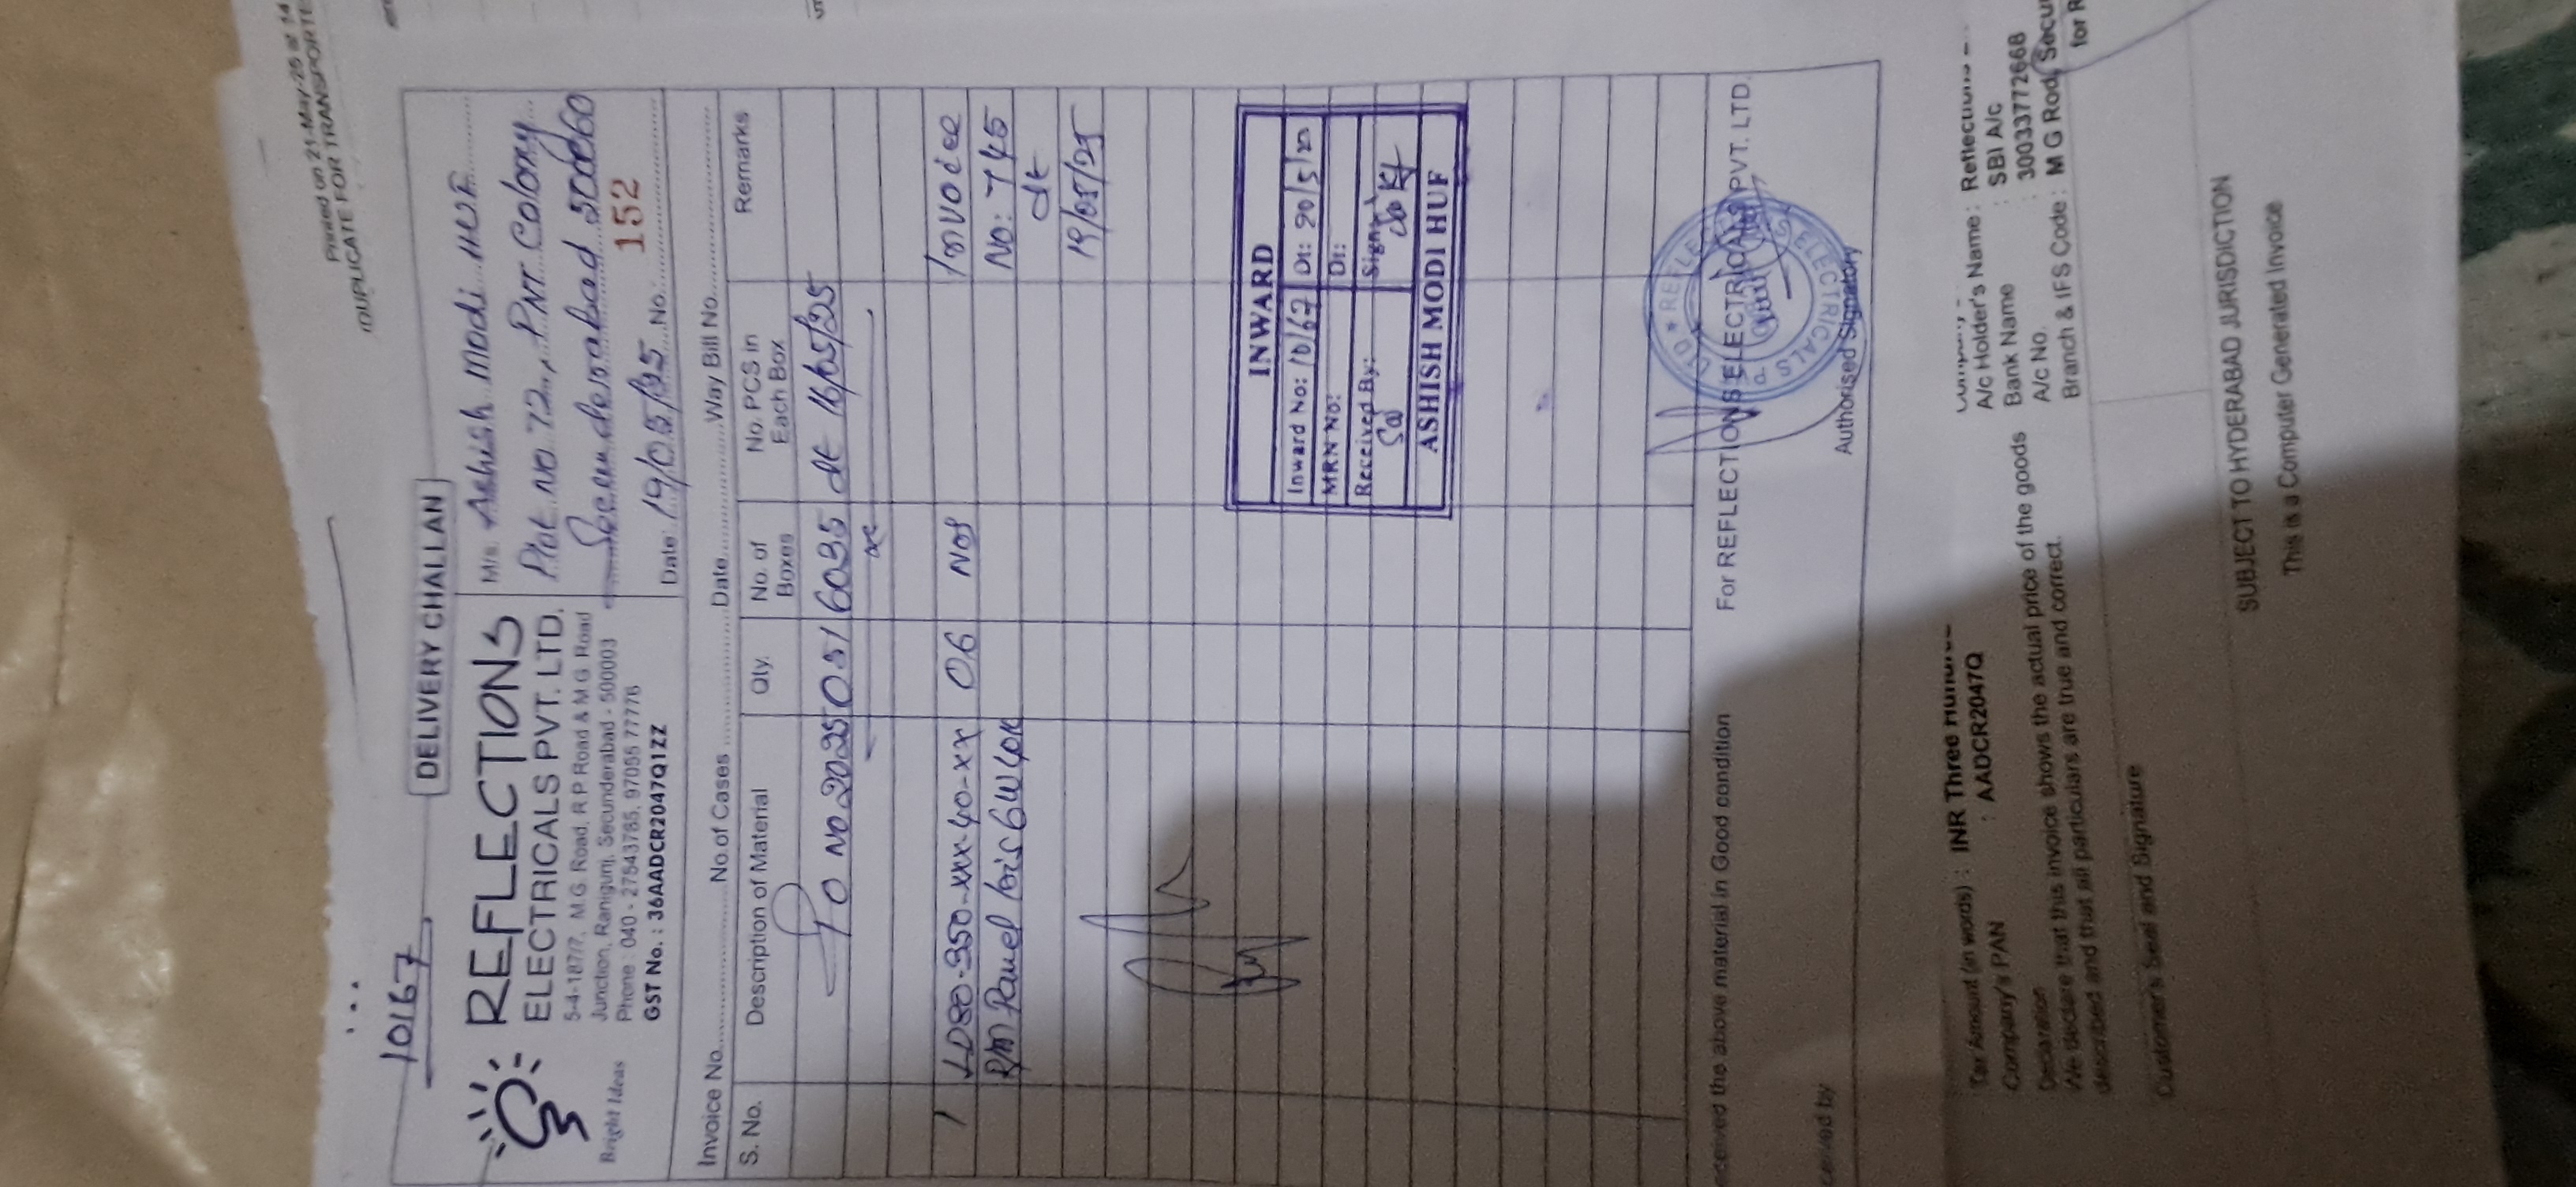 Printed on 21-May-25 at 14
(DUPLICATE FOR TRANSPORTE
10167
DELIVERY CHALLAN
REFLECTIONS
ELECTRICALS PVT. LTD.
Bright Ideas
5-4-187/7, M.G. Road, R P Road & M.G. Road
Junction, Ranigunj, Secunderabad - 500003
Phone : 040 - 27543785, 97055 77776
GST No. : 36AADCR2047Q1ZZ
M/s. Ashish Modi HUF
Plot No 72, PNT Colony
Secunderabad 500060
Date: 19/05/25 No.: 152
Invoice No. No.of Cases Date Way Bill No.
S. No. Description of Material Qty. No. of Boxes No. PCS in Each Box Remarks
PO No 20250516035 dt 16/05/25
1 LD80-350-xxx-40-xx 06 Nos Invoice
RM Panel 6W No: 745
dt
19/05/25
INWARD
Inward No: 10167 Dt: 20/5/25
MRN No: Dt:
Received By: Sign:
ASHISH MODI HUF
eceived the above material in Good condition For REFLECTIONS ELECTRICALS PVT. LTD.
REFLECTIONS ELECTRICALS
ceived by Authorised Signatory
Tax Amount (in words) : INR Three
Company's PAN : AADCR2047Q
Declaration
We declare that this invoice shows the actual price of the goods
described and that all particulars are true and correct.
A/c Holder's Name :
Bank Name : SBI A/c
A/c No. : 30033772668
Branch & IFS Code : M G Rod, Secu
for R
Customer's Seal and Signature
SUBJECT TO HYDERABAD JURISDICTION
This is a Computer Generated Invoice